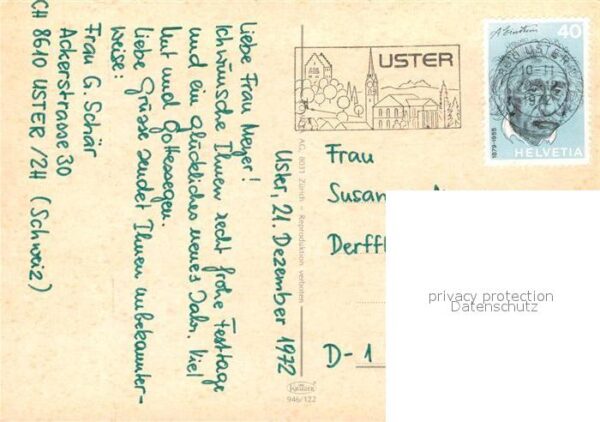 Uster, 21. Dezember 1972
Liebe Frau Meyer!
Ich wünsche Ihnen recht frohe Festtage
und ein glückliches neues Jahr. Viel
Mut und Gottessegen.
liebe Grüsse sendet Ihnen unbekannter-
weise:
Frau G. Schär
Ackerstrasse 30
CH 8610 USTER /ZH (Schweiz)
AG, 8031 Zürich – Reproduktion verboten
946/122
USTER
8610 USTER
A. Einstein
40
1879-1955
HELVETIA
Frau
Susan
Derffl
D-1
privacy protection
Datenschutz